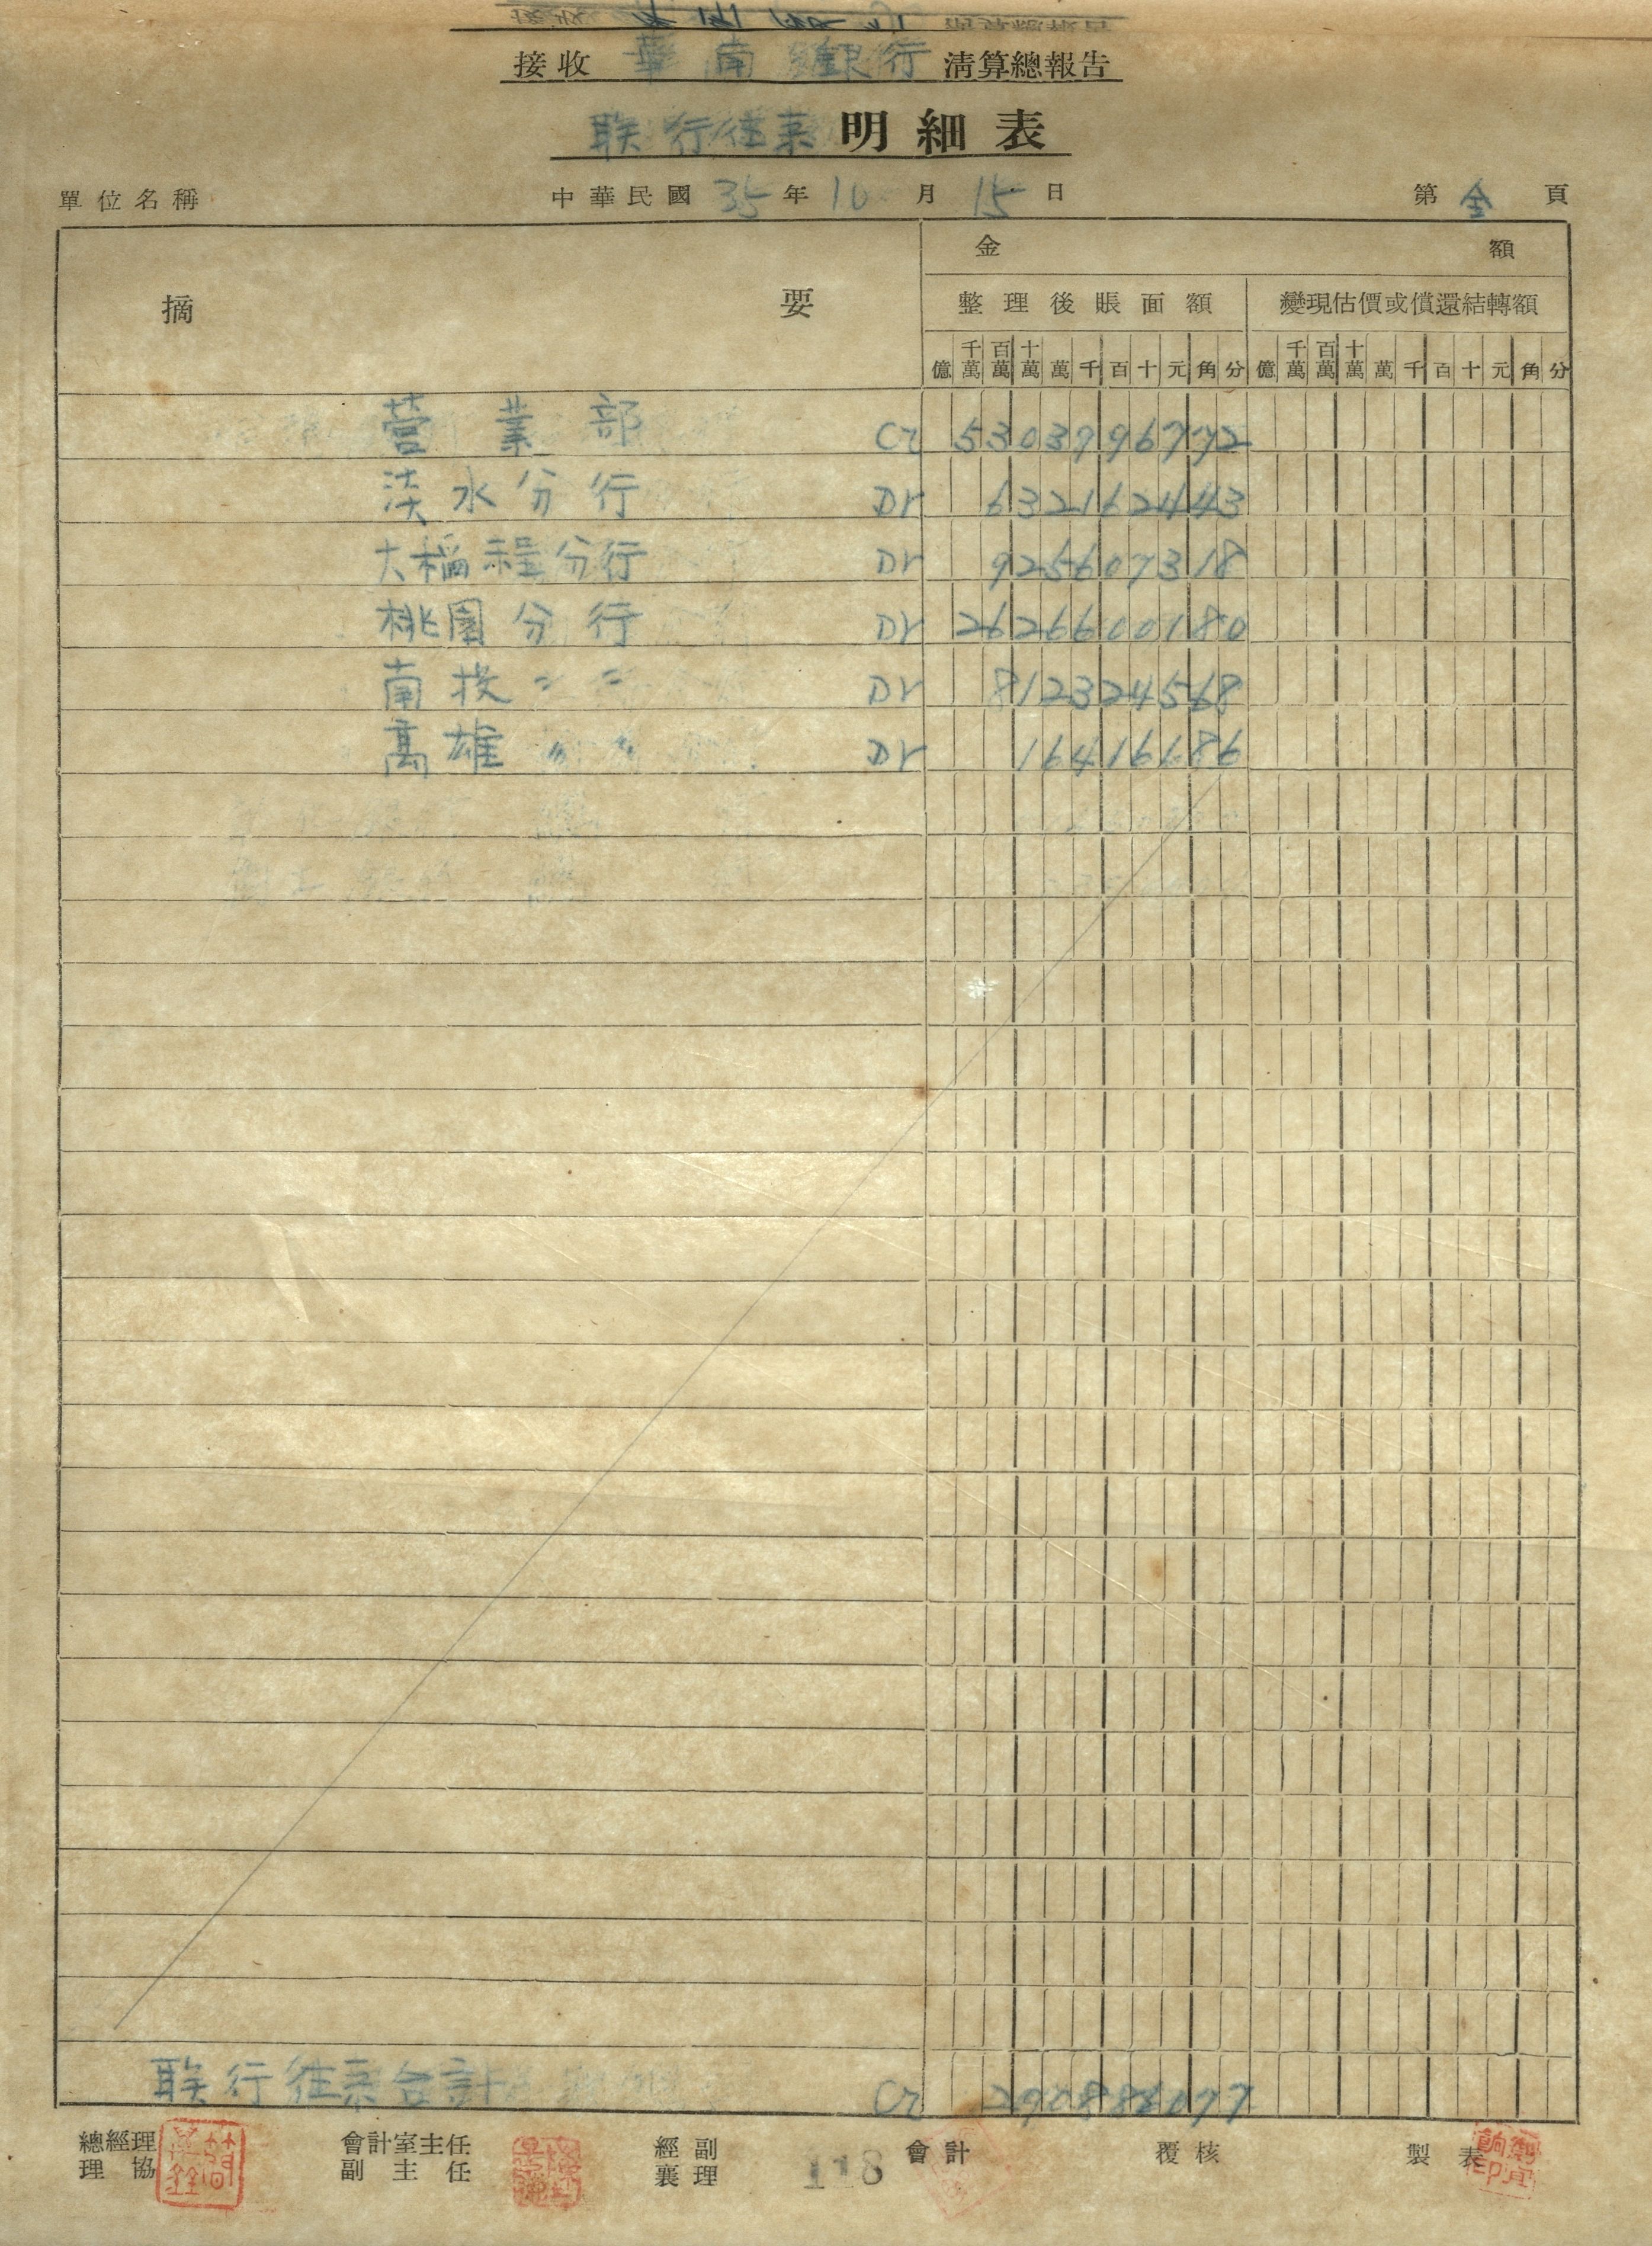 接收 華南銀行 清算總報告
联行往来 明細表
單位名稱 中華民國 35 年 10 月 15 日 第 全 頁
摘 要 金 額
整理後賬面額 變現估價或償還結轉額
億 千萬 百萬 十萬 萬 千 百 十 元 角 分 億 千萬 百萬 十萬 萬 千 百 十 元 角 分
营業部 Cr 5303996772
淡水分行 Dr 632162443
大稲埕分行 Dr 925607318
桃園分行 Dr 2626600180
南投〃〃 Dr 812324568
高雄〃〃 Dr 16416186
联行往来合計 Cr 290886077
總經理 會計室主任 經副 會計 覆核 製表
協理 副主任 襄理 118